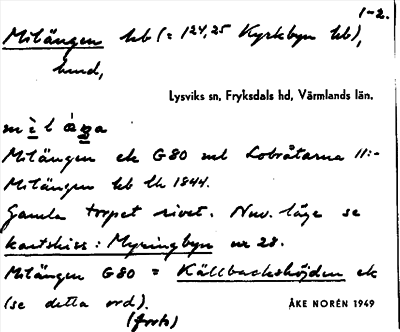 1-2.
Milängen hb (= 124,25 Kyrkbyn hb),
hmd,
Lysviks sn, Fryksdals hd, Värmlands län.
Milängen ek G80 ml Lobråtarna 11:-
Milängen hb lk 1844.
Gamla torpet rivet. Nuv. läge se
kartskiss: Myringbyn nr 28.
Milängen G80 = Källbackshöjden ek
(se detta ord).
ÅKE NORÉN 1949
(forts)